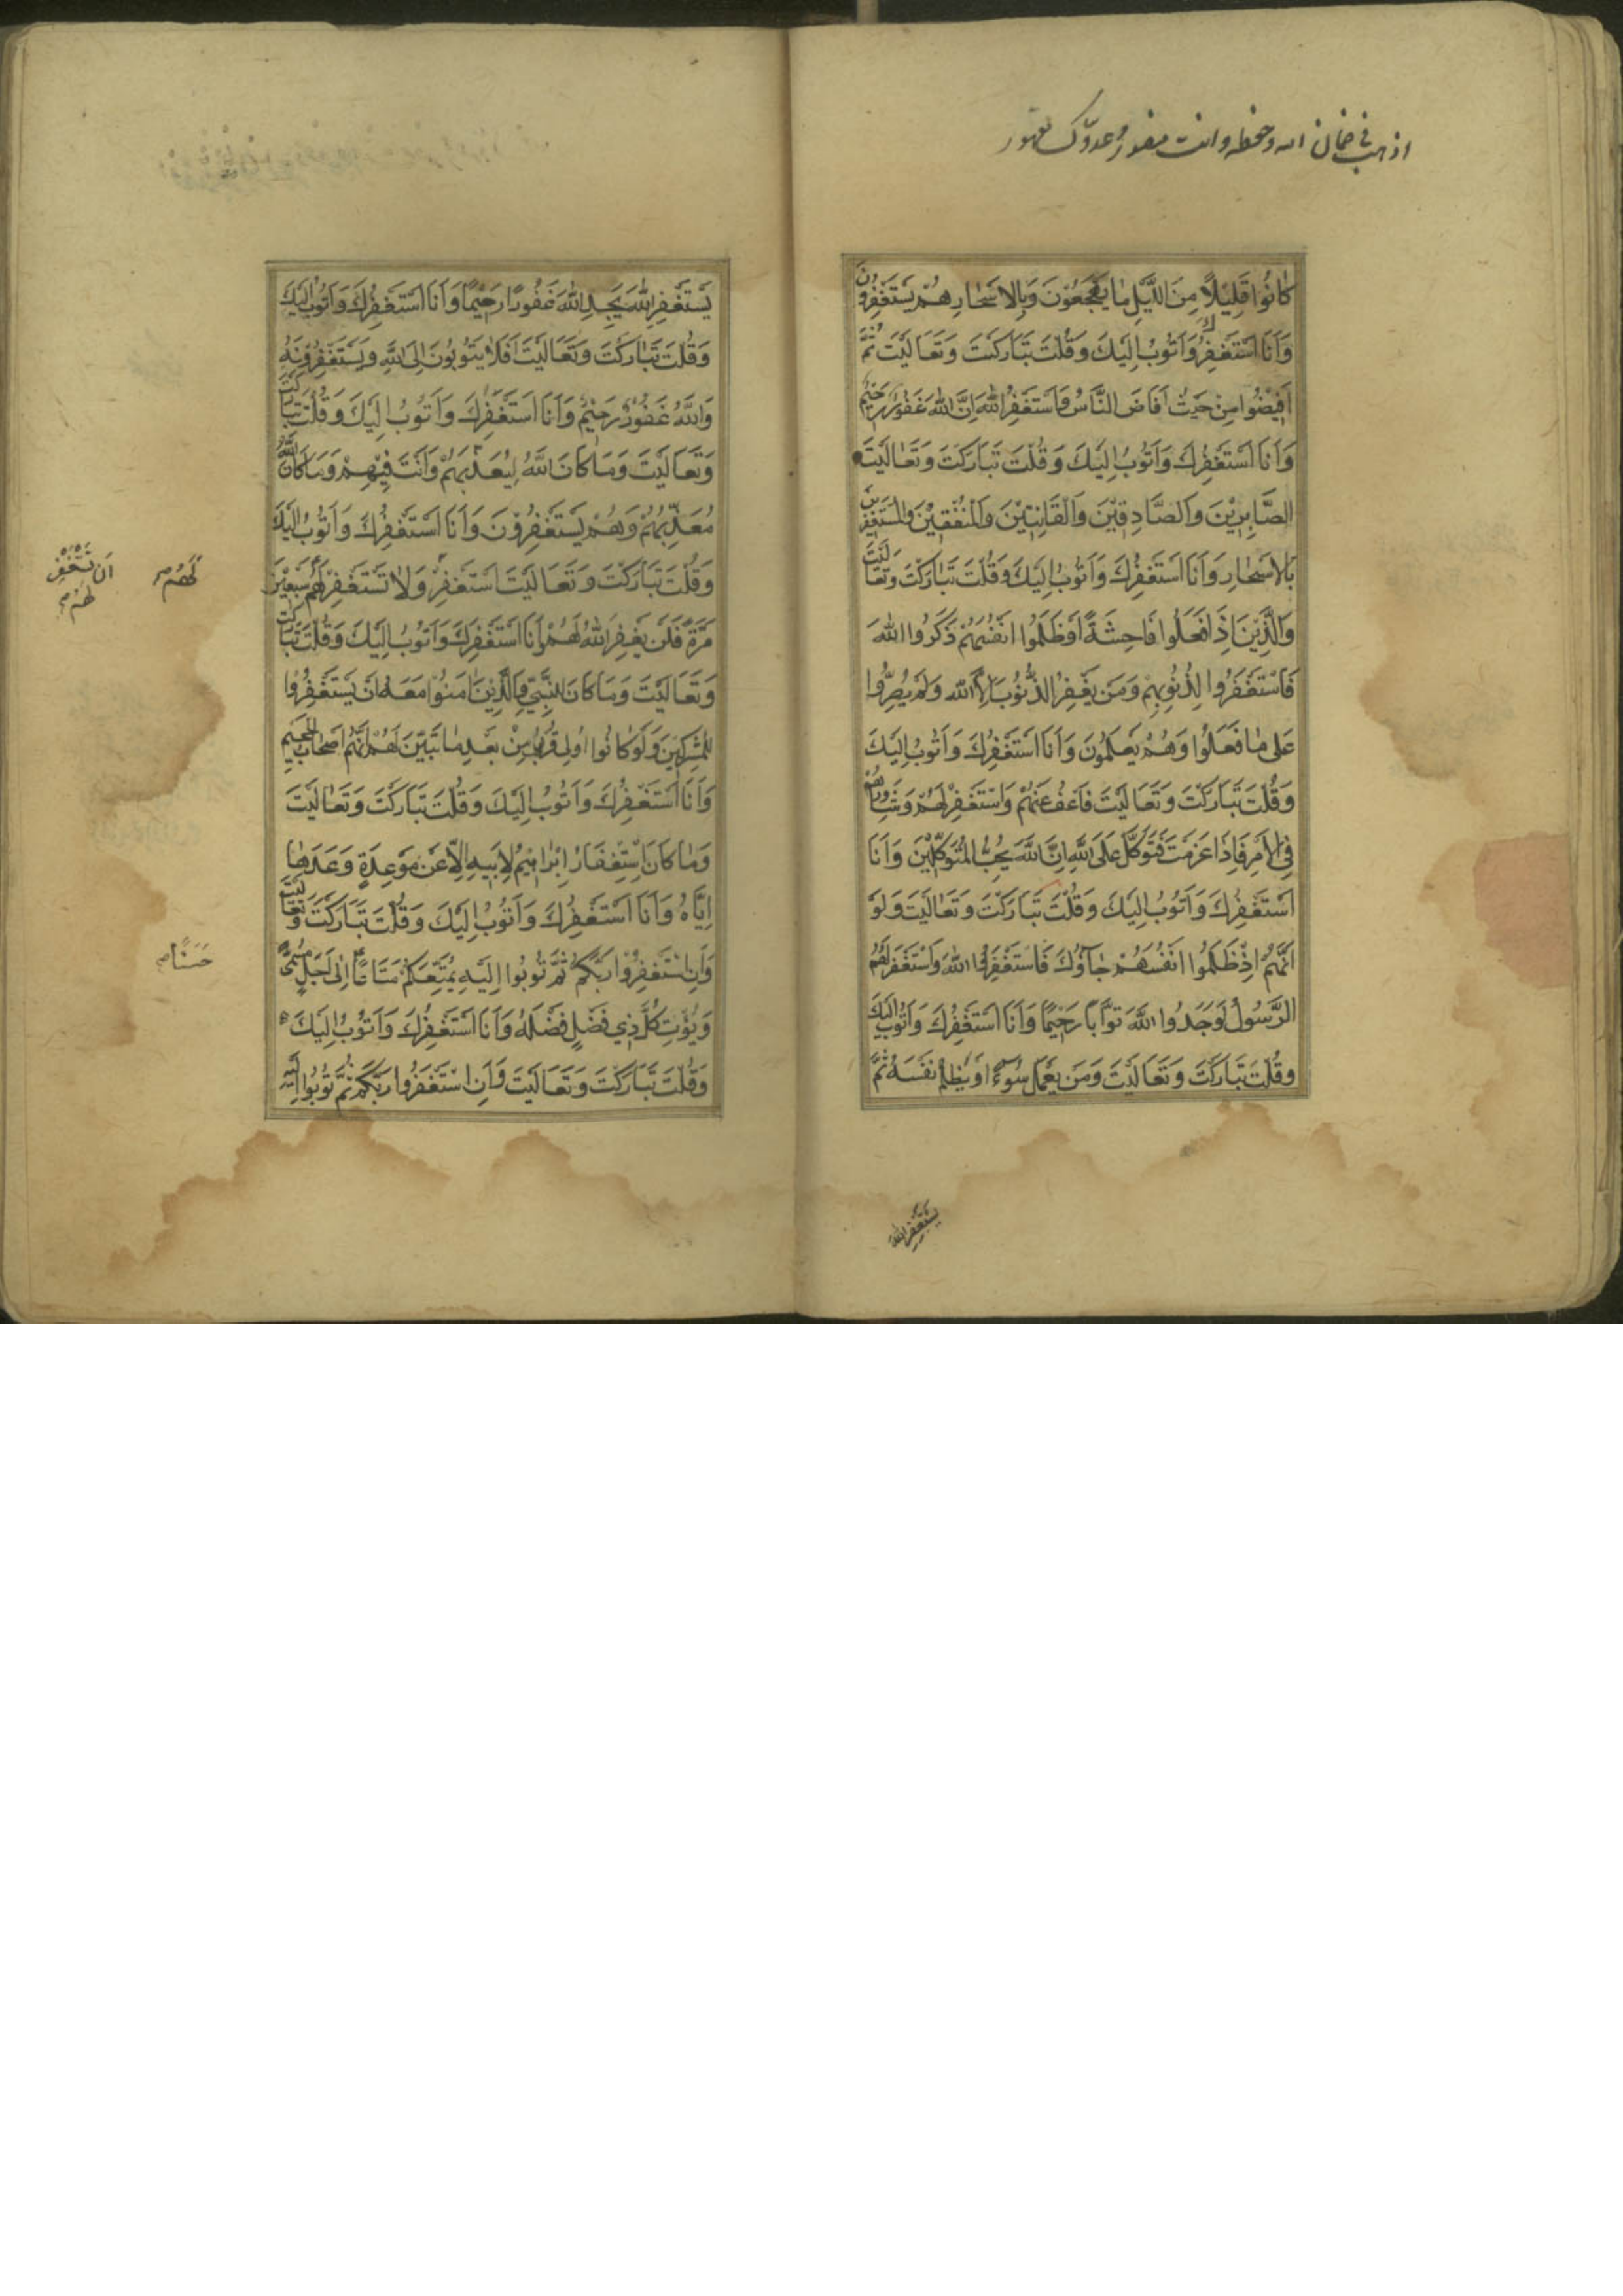 اذهب في ضمان الله وحفظه وانت منصور وعدوّك مقهور
كانُوا قَلِيلًا مِنَ اللَّيْلِ ما يَهْجَعُونَ وَبِالاَسْحارِ هُمْ يَسْتَغْفِرُونَ
وَاَنَا اَسْتَغْفِرُكَ وَاَتُوبُ اِلَيْكَ وَقُلْتَ تَبَارَكْتَ وَتَعَالَيْتَ ثُمَّ
اَفِيضُوا مِنْ حَيْثُ اَفَاضَ النَّاسُ وَاسْتَغْفِرُوا اللّٰهَ اِنَّ اللّٰهَ غَفُورٌ رَحِيمٌ
وَاَنَا اَسْتَغْفِرُكَ وَاَتُوبُ اِلَيْكَ وَقُلْتَ تَبَارَكْتَ وَتَعَالَيْتَ
الصَّابِرِيْنَ وَالصَّادِقِيْنَ وَالْقَانِتِيْنَ وَالْمُنْفِقِيْنَ وَالْمُسْتَغْفِرِينَ
بِالاَسْحارِ وَاَنَا اَسْتَغْفِرُكَ وَاَتُوبُ اِلَيْكَ وَقُلْتَ تَبَارَكْتَ وَتَعَالَيْتَ
وَالَّذِيْنَ اِذَا فَعَلُوا فَاحِشَةً اَوْ ظَلَمُوا اَنْفُسَهُمْ ذَكَرُوا اللّٰهَ
فَاسْتَغْفَرُوا لِذُنُوبِهِمْ وَمَنْ يَغْفِرُ الذُّنُوبَ اِلَّا اللّٰهُ وَلَمْ يُصِرُّوا
عَلى ما فَعَلُوا وَهُمْ يَعْلَمُونَ وَاَنَا اَسْتَغْفِرُكَ وَاَتُوبُ اِلَيْكَ
وَقُلْتَ تَبَارَكْتَ وَتَعَالَيْتَ فَاعْفُ عَنْهُمْ وَاسْتَغْفِرْ لَهُمْ وَشَاوِرْهُمْ
فِي الْاَمْرِ فَاِذَا عَزَمْتَ فَتَوَكَّلْ عَلَى اللّٰهِ اِنَّ اللّٰهَ يُحِبُّ الْمُتَوَكِّلِيْنَ وَاَنَا
اَسْتَغْفِرُكَ وَاَتُوبُ اِلَيْكَ وَقُلْتَ تَبَارَكْتَ وَتَعَالَيْتَ وَلَوْ
اَنَّهُمْ اِذْ ظَلَمُوا اَنْفُسَهُمْ جَآؤُكَ فَاسْتَغْفَرُوا اللّٰهَ وَاسْتَغْفَرَ لَهُمُ
الرَّسُولُ لَوَجَدُوا اللّٰهَ تَوَّابًا رَحِيْمًا وَاَنَا اَسْتَغْفِرُكَ وَاَتُوبُ اِلَيْكَ
وَقُلْتَ تَبَارَكْتَ وَتَعَالَيْتَ وَمَنْ يَعْمَلْ سُوءًا اَوْ يَظْلِمْ نَفْسَهُ ثُمَّ
يَسْتَغْفِرِ اللّٰهَ
يَسْتَغْفِرِ اللّٰهَ يَجِدِ اللّٰهَ غَفُورًا رَحِيْمًا وَاَنَا اَسْتَغْفِرُكَ وَاَتُوبُ اِلَيْكَ
وَقُلْتَ تَبَارَكْتَ وَتَعَالَيْتَ اَفَلَا يَتُوبُونَ اِلَى اللّٰهِ وَيَسْتَغْفِرُونَهُ
وَاللّٰهُ غَفُورٌ رَحِيْمٌ وَاَنَا اَسْتَغْفِرُكَ وَاَتُوبُ اِلَيْكَ وَقُلْتَ تَبَارَكْتَ
وَتَعَالَيْتَ وَمَا كَانَ اللّٰهُ لِيُعَذِّبَهُمْ وَاَنْتَ فِيْهِمْ وَمَا كَانَ اللّٰهُ
مُعَذِّبَهُمْ وَهُمْ يَسْتَغْفِرُوْنَ وَاَنَا اَسْتَغْفِرُكَ وَاَتُوبُ اِلَيْكَ
وَقُلْتَ تَبَارَكْتَ وَتَعَالَيْتَ اسْتَغْفِرْ وَلَا تَسْتَغْفِرْ لَهُمْ سَبْعِيْنَ
لَهُمْ صح
اَنْ تَسْتَغْفِرْ لَهُمْ صح
مَرَّةً فَلَنْ يَغْفِرَ اللّٰهُ لَهُمْ وَاَنَا اَسْتَغْفِرُكَ وَاَتُوبُ اِلَيْكَ وَقُلْتَ تَبَارَكْتَ
وَتَعَالَيْتَ وَمَا كَانَ لِلنَّبِيِّ وَالَّذِيْنَ اٰمَنُوا مَعَهُ اَنْ يَسْتَغْفِرُوا
لِلْمُشْرِكِيْنَ وَلَوْ كَانُوا اُولِي قُرْبٰى مِنْ بَعْدِ مَا تَبَيَّنَ لَهُمْ اَنَّهُمْ اَصْحَابُ الْجَحِيمِ
وَاَنَا اَسْتَغْفِرُكَ وَاَتُوبُ اِلَيْكَ وَقُلْتَ تَبَارَكْتَ وَتَعَالَيْتَ
وَمَا كَانَ اسْتِغْفَارُ اِبْرَاهِيْمَ لِاَبِيهِ اِلَّا عَنْ مَوْعِدَةٍ وَعَدَهَا
اِيَّاهُ وَاَنَا اَسْتَغْفِرُكَ وَاَتُوبُ اِلَيْكَ وَقُلْتَ تَبَارَكْتَ وَتَعَالَيْتَ
وَاَنِ اسْتَغْفِرُوا رَبَّكُمْ ثُمَّ تُوبُوا اِلَيْهِ يُمَتِّعْكُمْ مَتَاعًا اِلٰى اَجَلٍ مُسَمًّى
حَسَنًا صح
وَيُؤْتِ كُلَّ ذِي فَضْلٍ فَضْلَهُ وَاَنَا اَسْتَغْفِرُكَ وَاَتُوبُ اِلَيْكَ
وَقُلْتَ تَبَارَكْتَ وَتَعَالَيْتَ وَاَنِ اسْتَغْفِرُوا رَبَّكُمْ ثُمَّ تُوبُوا اِلَيْهِ